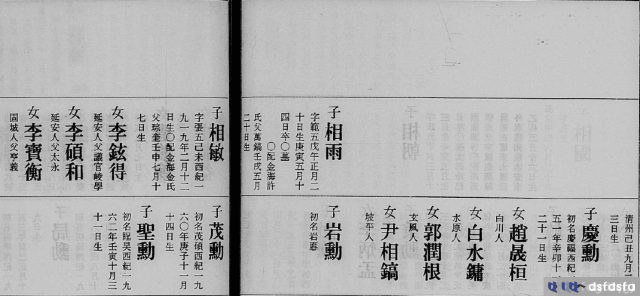 子 相雨
字範五戊午正月二
十日生庚寅五月
四日卒○墓
○配金海許
氏父萬鎬壬戌五月
二十日生
子 相敏
字張五己未西紀一
九一九年二月十二
日生○配金海金氏
父琮奎壬申七月十
七日生
女 李鉉得
延安人父議官峻學
女 李碩和
延安人父太永
女 李寶衡
固城人父亨義
清州己丑九月二
三日生
子 慶勳
初名慶福西紀一九
五一年辛卯十一月
二十一日生
女 趙晟桓
白川人
女 白水鏞
水原人
女 郭潤根
玄風人
女 尹相鎬
坡平人
子 岩勳
初名岩
子 茂勳
初名茂碩西紀一九
六〇年庚子十一月
十四日生
子 聖勳
初名 昊西紀一九
六二年壬寅十月三
十一日生
dsfdsfa